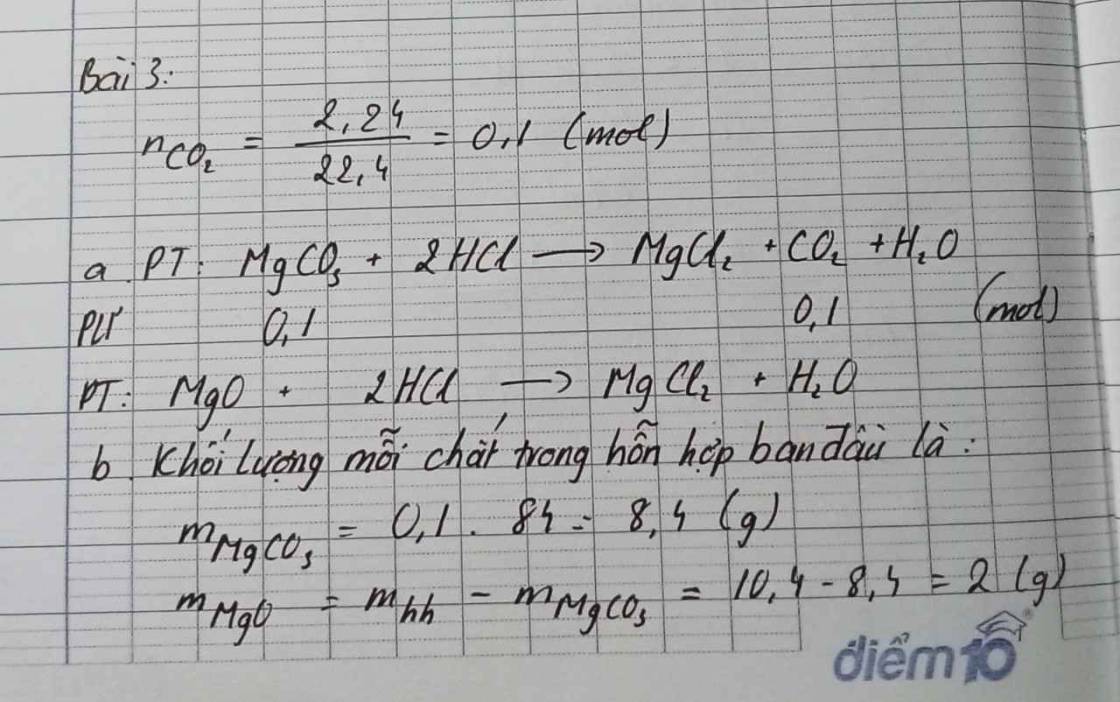 Bài 3:
nCO₂ = 2,24 / 22,4 = 0,1 (mol)
a. PT: MgCO₃ + 2HCl → MgCl₂ + CO₂ + H₂O
PƯ 0,1 0,1 (mol)
PT: MgO + 2HCl → MgCl₂ + H₂O
b. Khối lượng mỗi chất trong hỗn hợp ban đầu là:
mMgCO₃ = 0,1 . 84 = 8,4 (g)
mMgO = mhh - mMgCO₃ = 10,4 - 8,4 = 2 (g)
điểm10